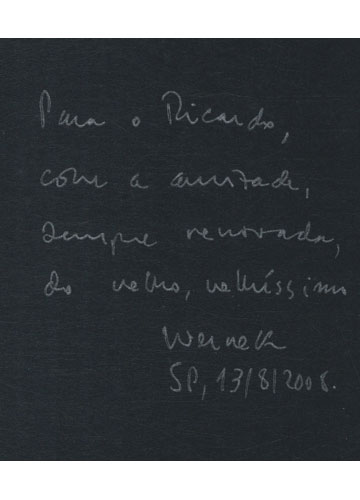 Para o Ricardo,
com a amizade,
sempre renovada,
do velho, velhíssimo
Werneck
SP, 13/8/2008.